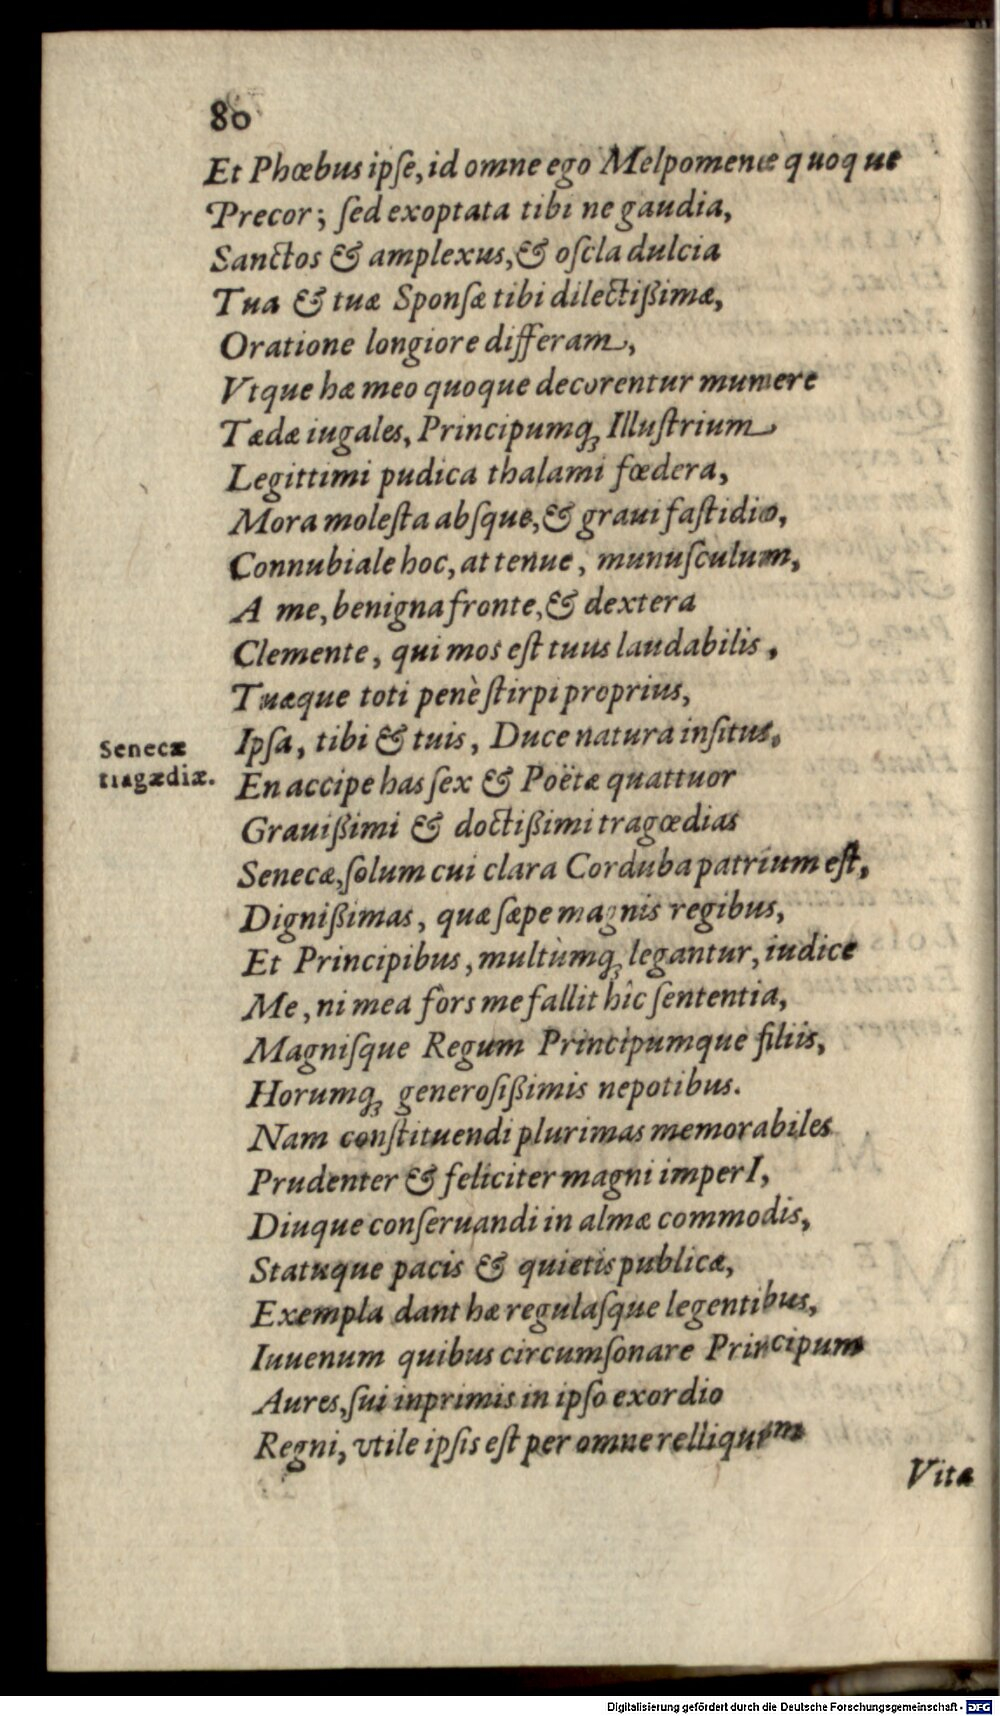 80
Et Phœbus ipſe, id omne ego Melpomenæ quoque
Precor; ſed exoptata tibi ne gaudia,
Sanctos & amplexus, & oſcla dulcia
Tua & tuæ Sponſæ tibi dilectißimæ,
Oratione longiore differam,
Vtque hæ meo quoque decorentur munere
Tædæ iugales, Principumq́; Illuſtrium
Legittimi pudica thalami fœdera,
Mora moleſta abſque, & graui faſtidio,
Connubiale hoc, at tenue, munuſculum,
A me, benigna fronte, & dextera
Clemente, qui mos eſt tuus laudabilis,
Tuæque toti penè ſtirpi proprius,
Ipſa, tibi & tuis, Duce natura inſitus,
Senecæ
tragædiæ.
En accipe has ſex & Poëtæ quattuor
Grauißimi & doctißimi tragœdias
Senecæ, ſolum cui clara Corduba patrium eſt,
Dignißimas, quæ ſæpe magnis regibus,
Et Principibus, multùmq; legantur, iudice
Me, ni mea fors me fallit hîc ſententia,
Magniſque Regum Principumque filiis,
Horumq; generoſißimis nepotibus.
Nam conſtituendi plurimas memorabiles
Prudenter & feliciter magni imperI,
Diuque conſeruandi in almæ commodis,
Statuque pacis & quietis publicæ,
Exempla dant hæ regulaſque legentibus,
Iuuenum quibus circumſonare Principum
Aures, ſui inprimis in ipſo exordio
Regni, vtile ipſis eſt per omne relliquum
Vitæ
Digitalisierung gefördert durch die Deutsche Forschungsgemeinschaft - DFG